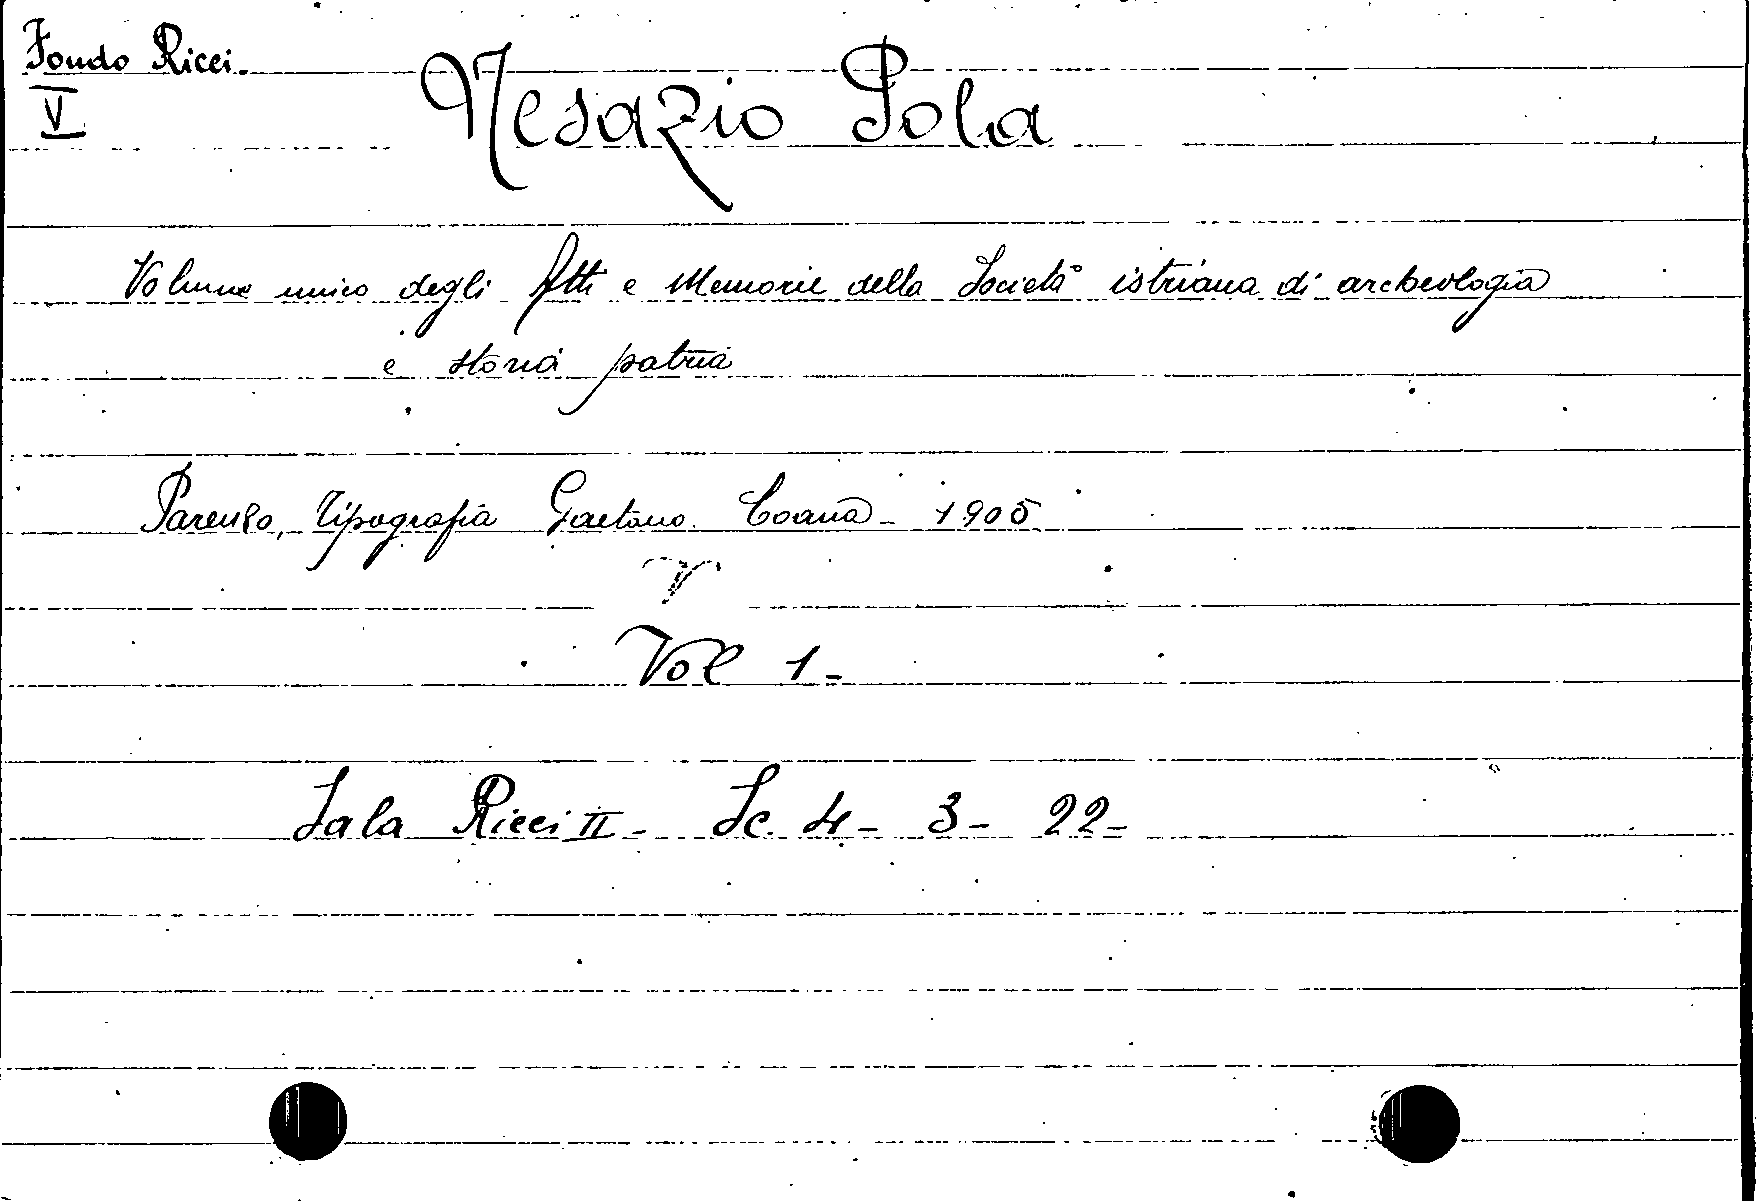 Fondo Ricci.
V
Nesazio Pola
Volume unico degli Atti e Memorie della Società istriana di archeologia
e storia patria
Parenzo, Tipografia Gaetano Coana - 1905
V
Vol 1-
Sala Ricci II - Sc. 4 - 3 - 22-